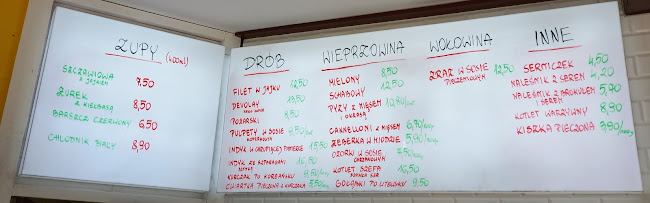 ZUPY (400ml)
SZCZAWIOWA
Z JAJKIEM 7,50
ŻUREK
Z KIEŁBASĄ 8,50
BARSZCZ CZERWONY 6,50
CHŁODNIK BIAŁY 8,90
DRÓB
FILET W JAJKU 12,50
DEVOLAY 13,50
POŻARSKI
PULPETY W SOSIE
KOPERKOWYM
INDYK W CHRUPIĄCEJ PANIERCE 15,50
INDYK ZE SZPARAGAMI 16,50
KURCZAK PO KOREAŃSKU
ĆWIARTKA PIECZONA Z KURCZAKA
WIEPRZOWINA
MIELONY 8,50
SCHABOWY 12,50
PYZY Z MIĘSEM
I OKRASĄ
CANNELLONI Z MIĘSEM
ŻEBERKA W MIODZIE
OZORKI W SOSIE
CHRZANOWYM
KOTLET SZEFA 16,50
GOŁĄBKI PO LITEWSKU 9,50
WOŁOWINA
ZRAZ W SOSIE 12,50
PIECZENIOWYM
INNE
SERNICZEK 4,50
NALEŚNIK Z SEREM 4,20
NALEŚNIK Z BROKUŁEM 5,90
I SEREM
KOTLET WARZYWNY 8,90
KISZKA PIECZONA